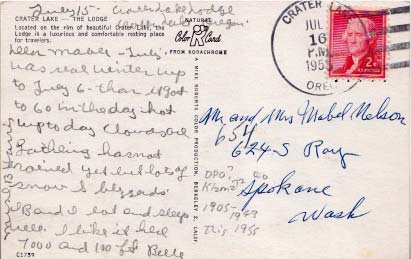 July 15 - Crater Lake Lodge
Crater Lake, Oregon.
CRATER LAKE — THE LODGE
Located on the rim of beautiful Crater Lake, the
Lodge is a luxurious and comfortable resting place
for travelers.
Dear Mabel - July
was real winter up
to July 6 - than
to 60 in the day hot
up to day
has not
rained yet but lots of
snow & blizzards
B and I eat and sleep
well. I like it here
7000 and 100 ft
C1759
NATURAL
Color Cards
FROM KODACHROME
A MIKE ROBERTS COLOR PRODUCTION, BERKELEY 2, CALIF.
CRATER LAKE
JUL
16
P.M.
1953
OREG.
2¢
Mr and Mrs Mabel Nelson
654
624 S Ray
Spokane
Wash
1905-
1943
This 1955